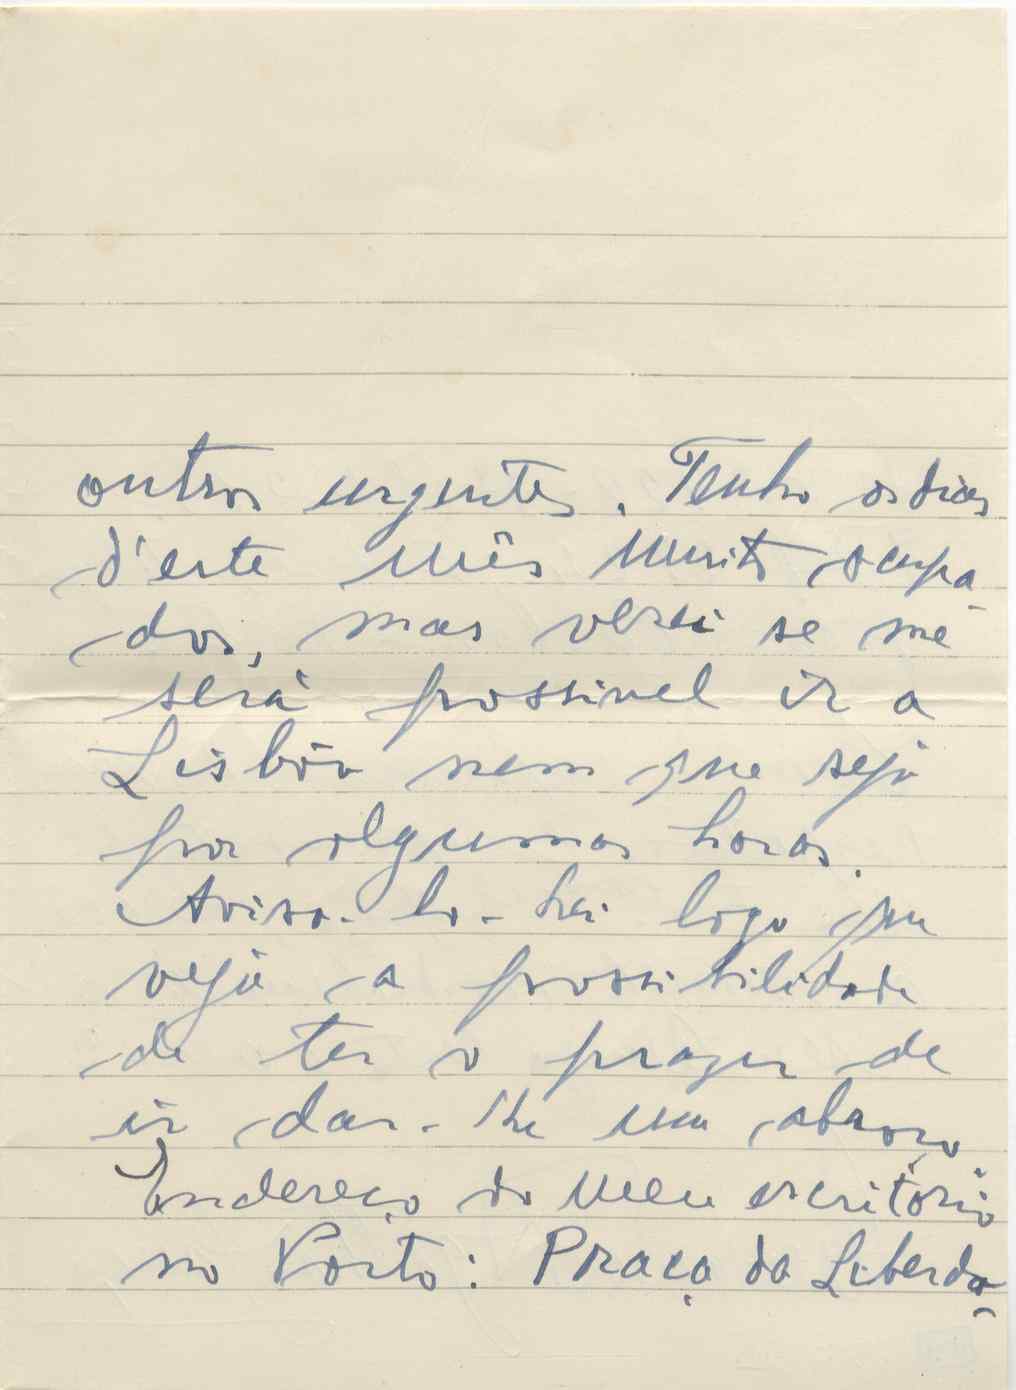 outros urgentes. Tenho os dias
d'este mês muito ocupa-
dos, mas verei se me
será possivel ir a
Lisbôa nem que seja
por algumas horas.
Aviso-lo-hei logo que
veja a possibilidade
de ter o prazer de
ir dar-lhe um abraço.
Endereço do meu escritório
no Porto: Praça da Liberda-